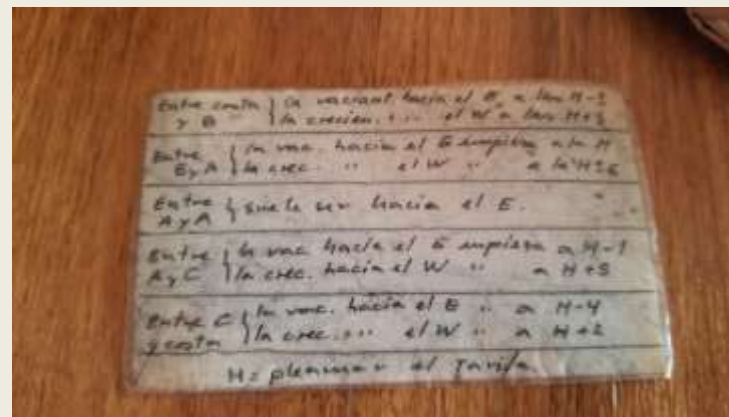 Entre costa { la vaciant. hacia el E. a las H-
y B { la crecien. " " el W a las H+3
Entre { la vac. hacia el E empieza a la H
B y A { la crec. " el W " a la H
Entre
A y A { suele ser hacia el E.
Entre { la vac hacia el E empieza a H-1
A y C { la crec. hacia el W " a H+5
Entre C { la vac. hacia el E " a H-4
y costa { la crec. " " el W " a H+2
H = pleamar el Tarifa